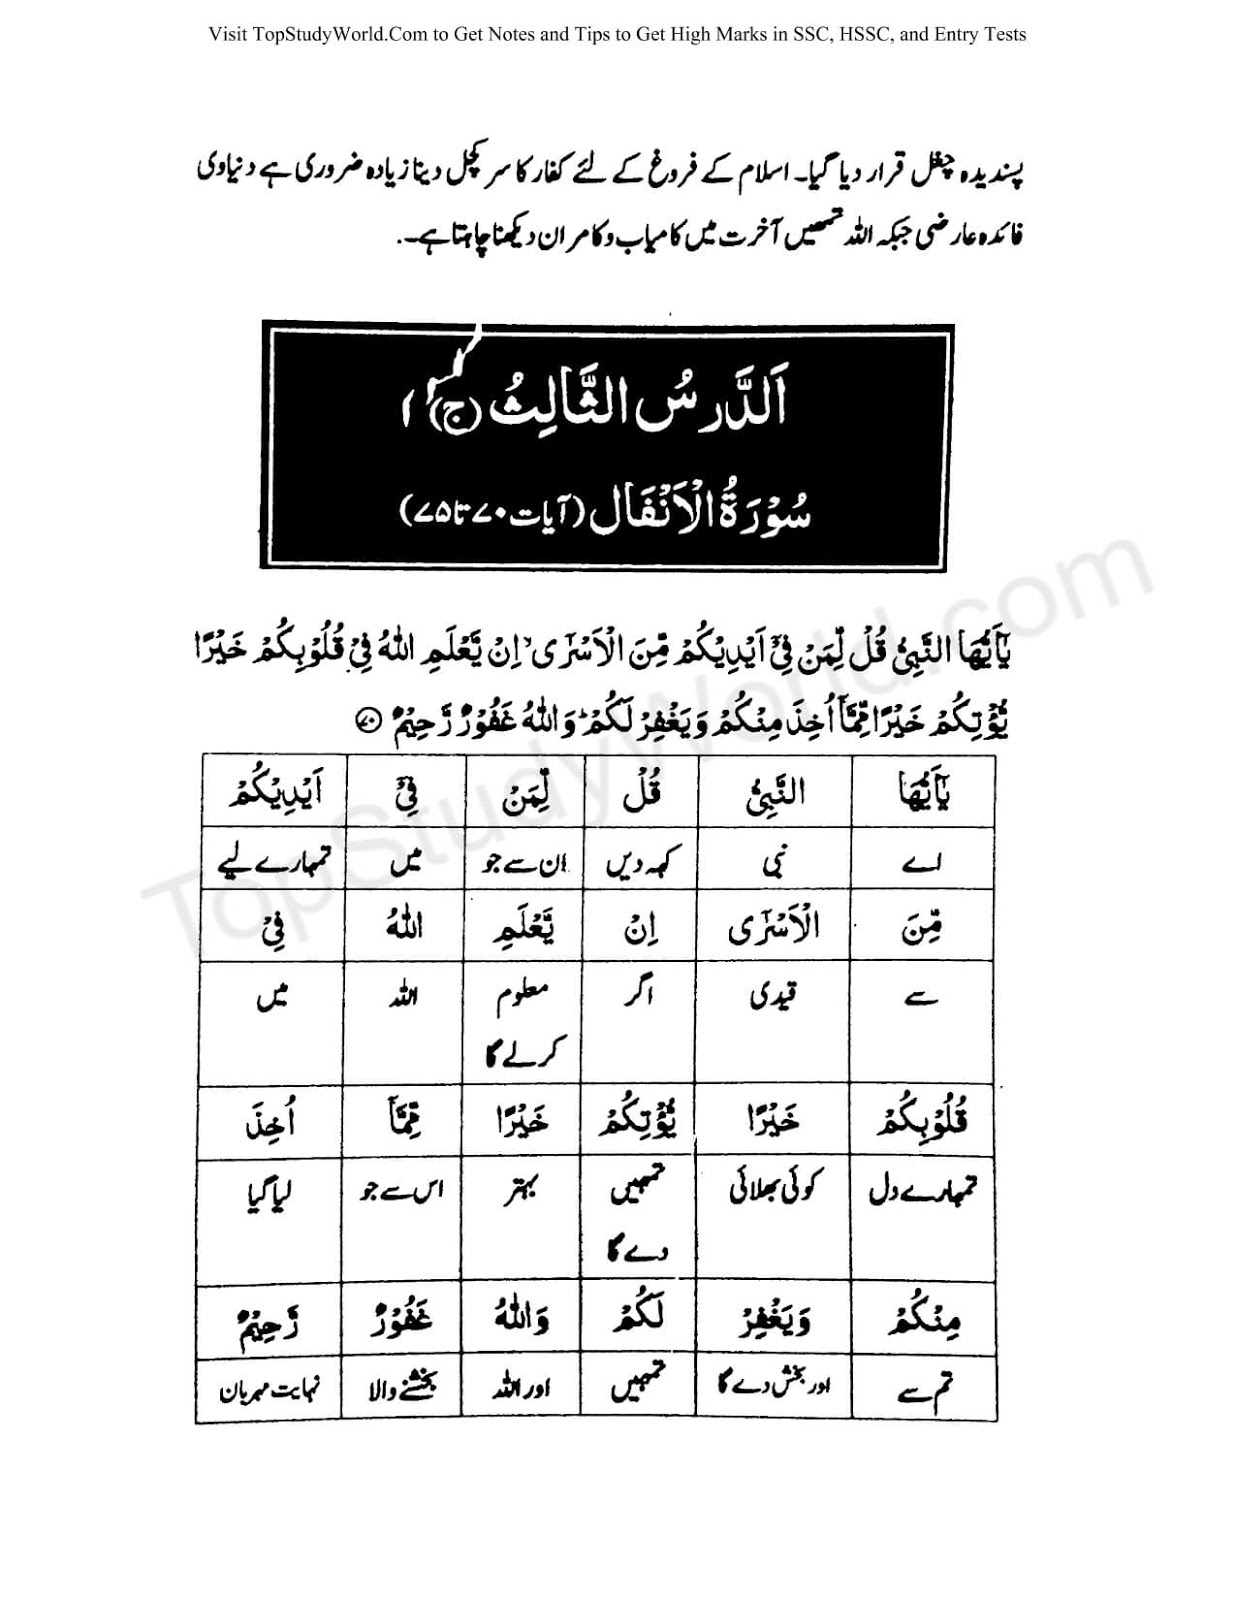 Visit TopStudyWorld.Com to Get Notes and Tips to Get High Marks in SSC, HSSC, and Entry Tests
پسندیدہ چغل قرار دیا گیا۔ اسلام کے فروغ کے لئے کفار کا سر کچل دینا زیادہ ضروری ہے دنیاوی
فائدہ عارضی جبکہ اللہ تمھیں آخرت میں کامیاب و کامران دیکھنا چاہتا ہے۔
اَلدَّرسُ الثَّالِثُ (ج)
سُوْرَةُ الْاَنْفَال (آیات ۷۰ تا ۷۵)
يٰٓاَيُّهَا النَّبِيُّ قُلْ لِّمَنْ فِيْٓ اَيْدِيْكُمْ مِّنَ الْاَسْرٰٓى ۙ اِنْ يَّعْلَمِ اللّٰهُ فِيْ قُلُوْبِكُمْ خَيْرًا
يُّؤْتِكُمْ خَيْرًا مِّمَّآ اُخِذَ مِنْكُمْ وَيَغْفِرْ لَكُمْ ۭ وَاللّٰهُ غَفُوْرٌ رَّحِيْمٌ ۷۰
يٰٓاَيُّهَا النَّبِيُّ قُلْ لِّمَنْ فِيْٓ اَيْدِيْكُمْ
اے نبی کہہ دیں ان سے جو میں تمہارے لیے
مِّنَ الْاَسْرٰٓى اِنْ يَّعْلَمِ اللّٰهُ فِيْ
سے قیدی اگر معلوم کرلے گا اللہ میں
قُلُوْبِكُمْ خَيْرًا يُّؤْتِكُمْ خَيْرًا مِّمَّآ اُخِذَ
تمہارے دل کوئی بھلائی تمہیں دے گا بہتر اس سے جو لیا گیا
مِنْكُمْ وَيَغْفِرْ لَكُمْ وَاللّٰهُ غَفُوْرٌ رَّحِيْمٌ
تم سے اور بخش دے گا تمہیں اور اللہ بخشنے والا نہایت مہربان
TopStudyWorld.com